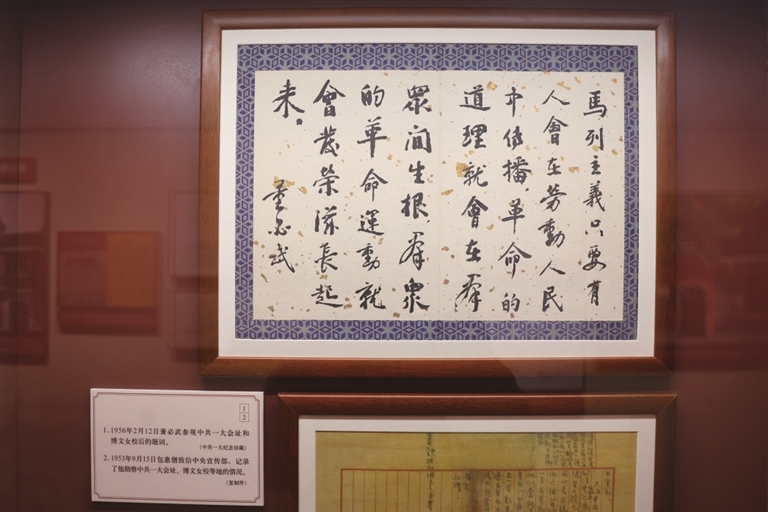 馬列主義只要有
人會在劳動人民
中传播，革命的
道理就會在羣
眾间生根羣眾
的革命運動就
會發榮滋長起
来。
董必武
1
2
1. 1956年2月12日董必武参观中共一大会址和
博文女校后的题词。
（中共一大纪念馆藏）
2. 1953年9月15日包惠僧致信中央宣传部，记录
了他勘察中共一大会址、博文女校等地的情况。
（复制件）